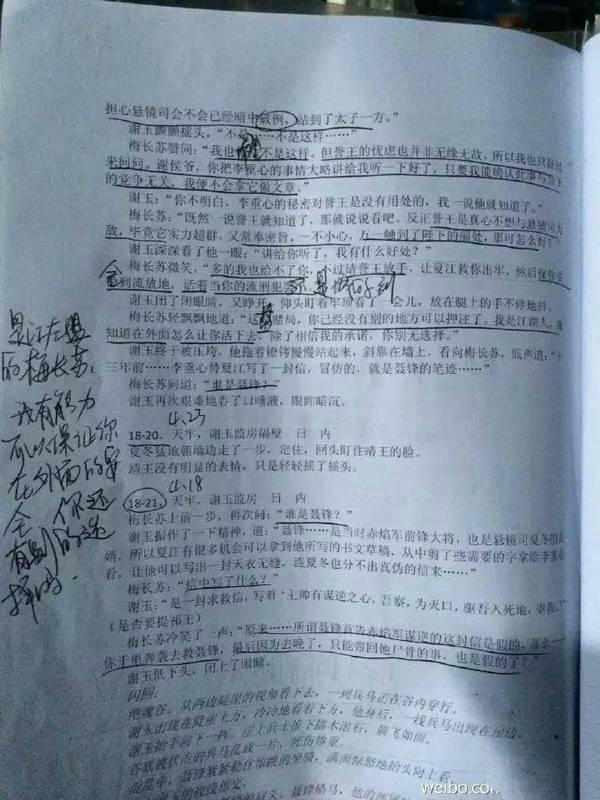 担心悬镜司会不会已经暗中
站到了太子一方。”
谢玉颤颤摇头，“不是……不是这样……”
梅长苏赞同：“我也 不是这样。但誉王的忧虑也并非无缘无故，所以我也只好
来问问。谢侯爷，你把李重心的事情大略讲给我听一下好了，只要我能确认此事与
的党争无关，我便不会拿它做文章。”
谢玉：“你不明白，李重心的秘密对誉王是没有用处的，我一说他就知道了。”
梅长苏：“既然一说誉王就知道了，那就说说看吧。反正誉王是真心不想与悬镜司为
敌，毕竟它实力超群，又常奉密旨，一不小心，万一触到了陛下的痛处，那可怎么好？”
谢玉深深看了他一眼：“讲给你听了，我有什么好处？”
梅长苏微笑，“多的我也给不了你，不过请誉王放手，让夏江救你出牢，然后
到流放地，活着当你的流刑犯
谢玉闭了闭眼睛，又睁开，仰头盯着牢顶看了一会儿，放在腿上的手不停地抖。
梅长苏轻飘飘地道：“这 赌局，你已经没有别的地方可以押注了。我是江湖人，我
知道在外面怎么让你活下去，除了相信我的承诺，你别无选择。”
谢玉终于被压垮，他拖着镣铐慢慢站起来，斜靠在墙上，看向梅长苏，低声道：“十
三年前……李重心替夏江写了一封信，冒仿的，就是聂锋的笔迹……”
梅长苏问道：“谁是聂锋？”
谢玉再次艰难地吞了口唾液，眼眸暗沉。
4.23
18-20. 天牢，谢玉监房隔壁 日 内
夏冬猛地朝墙边走了一步，定住，回头盯住靖王的脸。
靖王没有明显的表情，只是轻轻摇了摇头。
4.18
18-21. 天牢，谢玉监房 日 内
梅长苏上前一步，再次问：“谁是聂锋？”
谢玉振作了一下精神，道：“聂锋……是当时赤焰军前锋大将，也是悬镜司夏冬的
婿，所以夏江有很多机会可以拿到他所写的书文草稿，从中剪了些需要的字拿给李重心
看，让他可以写出一封天衣无缝，连夏冬也分不出真伪的信来……”
梅长苏：“信中写了什么？”
谢玉：“是一封求救信，写着‘主帅有谋逆之心，吾察，为灭口，驱吾入死地，
（是否要提祁王）
梅长苏冷笑了一声：“原来……所谓聂锋首告赤焰军谋逆的这封信是假的，那么……
你千里奔袭去救聂锋，最后因为去晚了，只能带回他尸骨的事，也是假的了？”
谢玉低下头，闭上了眼睛。
闪回：
绝魂谷。从两边陡崖的视角看下去，一列兵马正在谷内穿行。
是江左盟
的梅长苏。
我有能力
可以保证你
在外面的安
全，你还
有别的选
择吗
weibo.co..